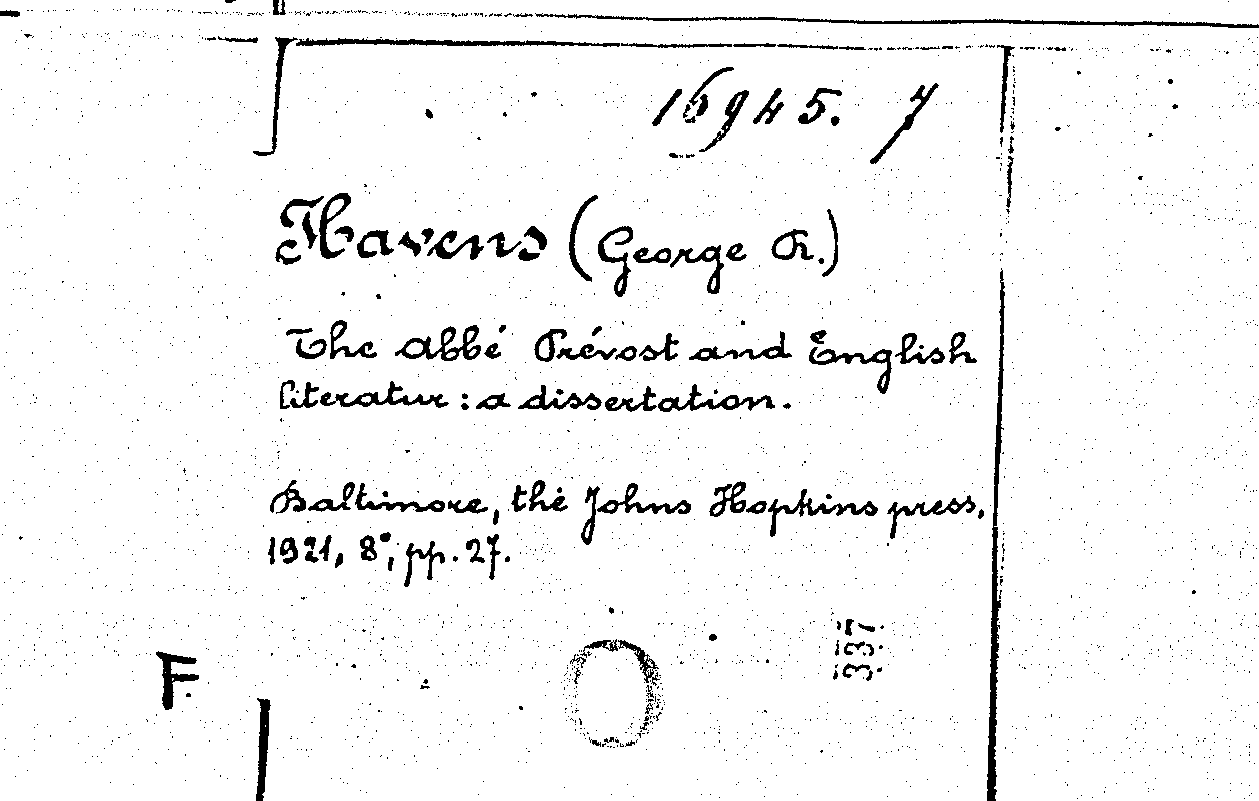 16945. 7
Havens (George R.)
The abbé Prévost and English
literatur : a dissertation.
Baltimore, the Johns Hopkins press,
1921, 8°, pp. 27.
337
F